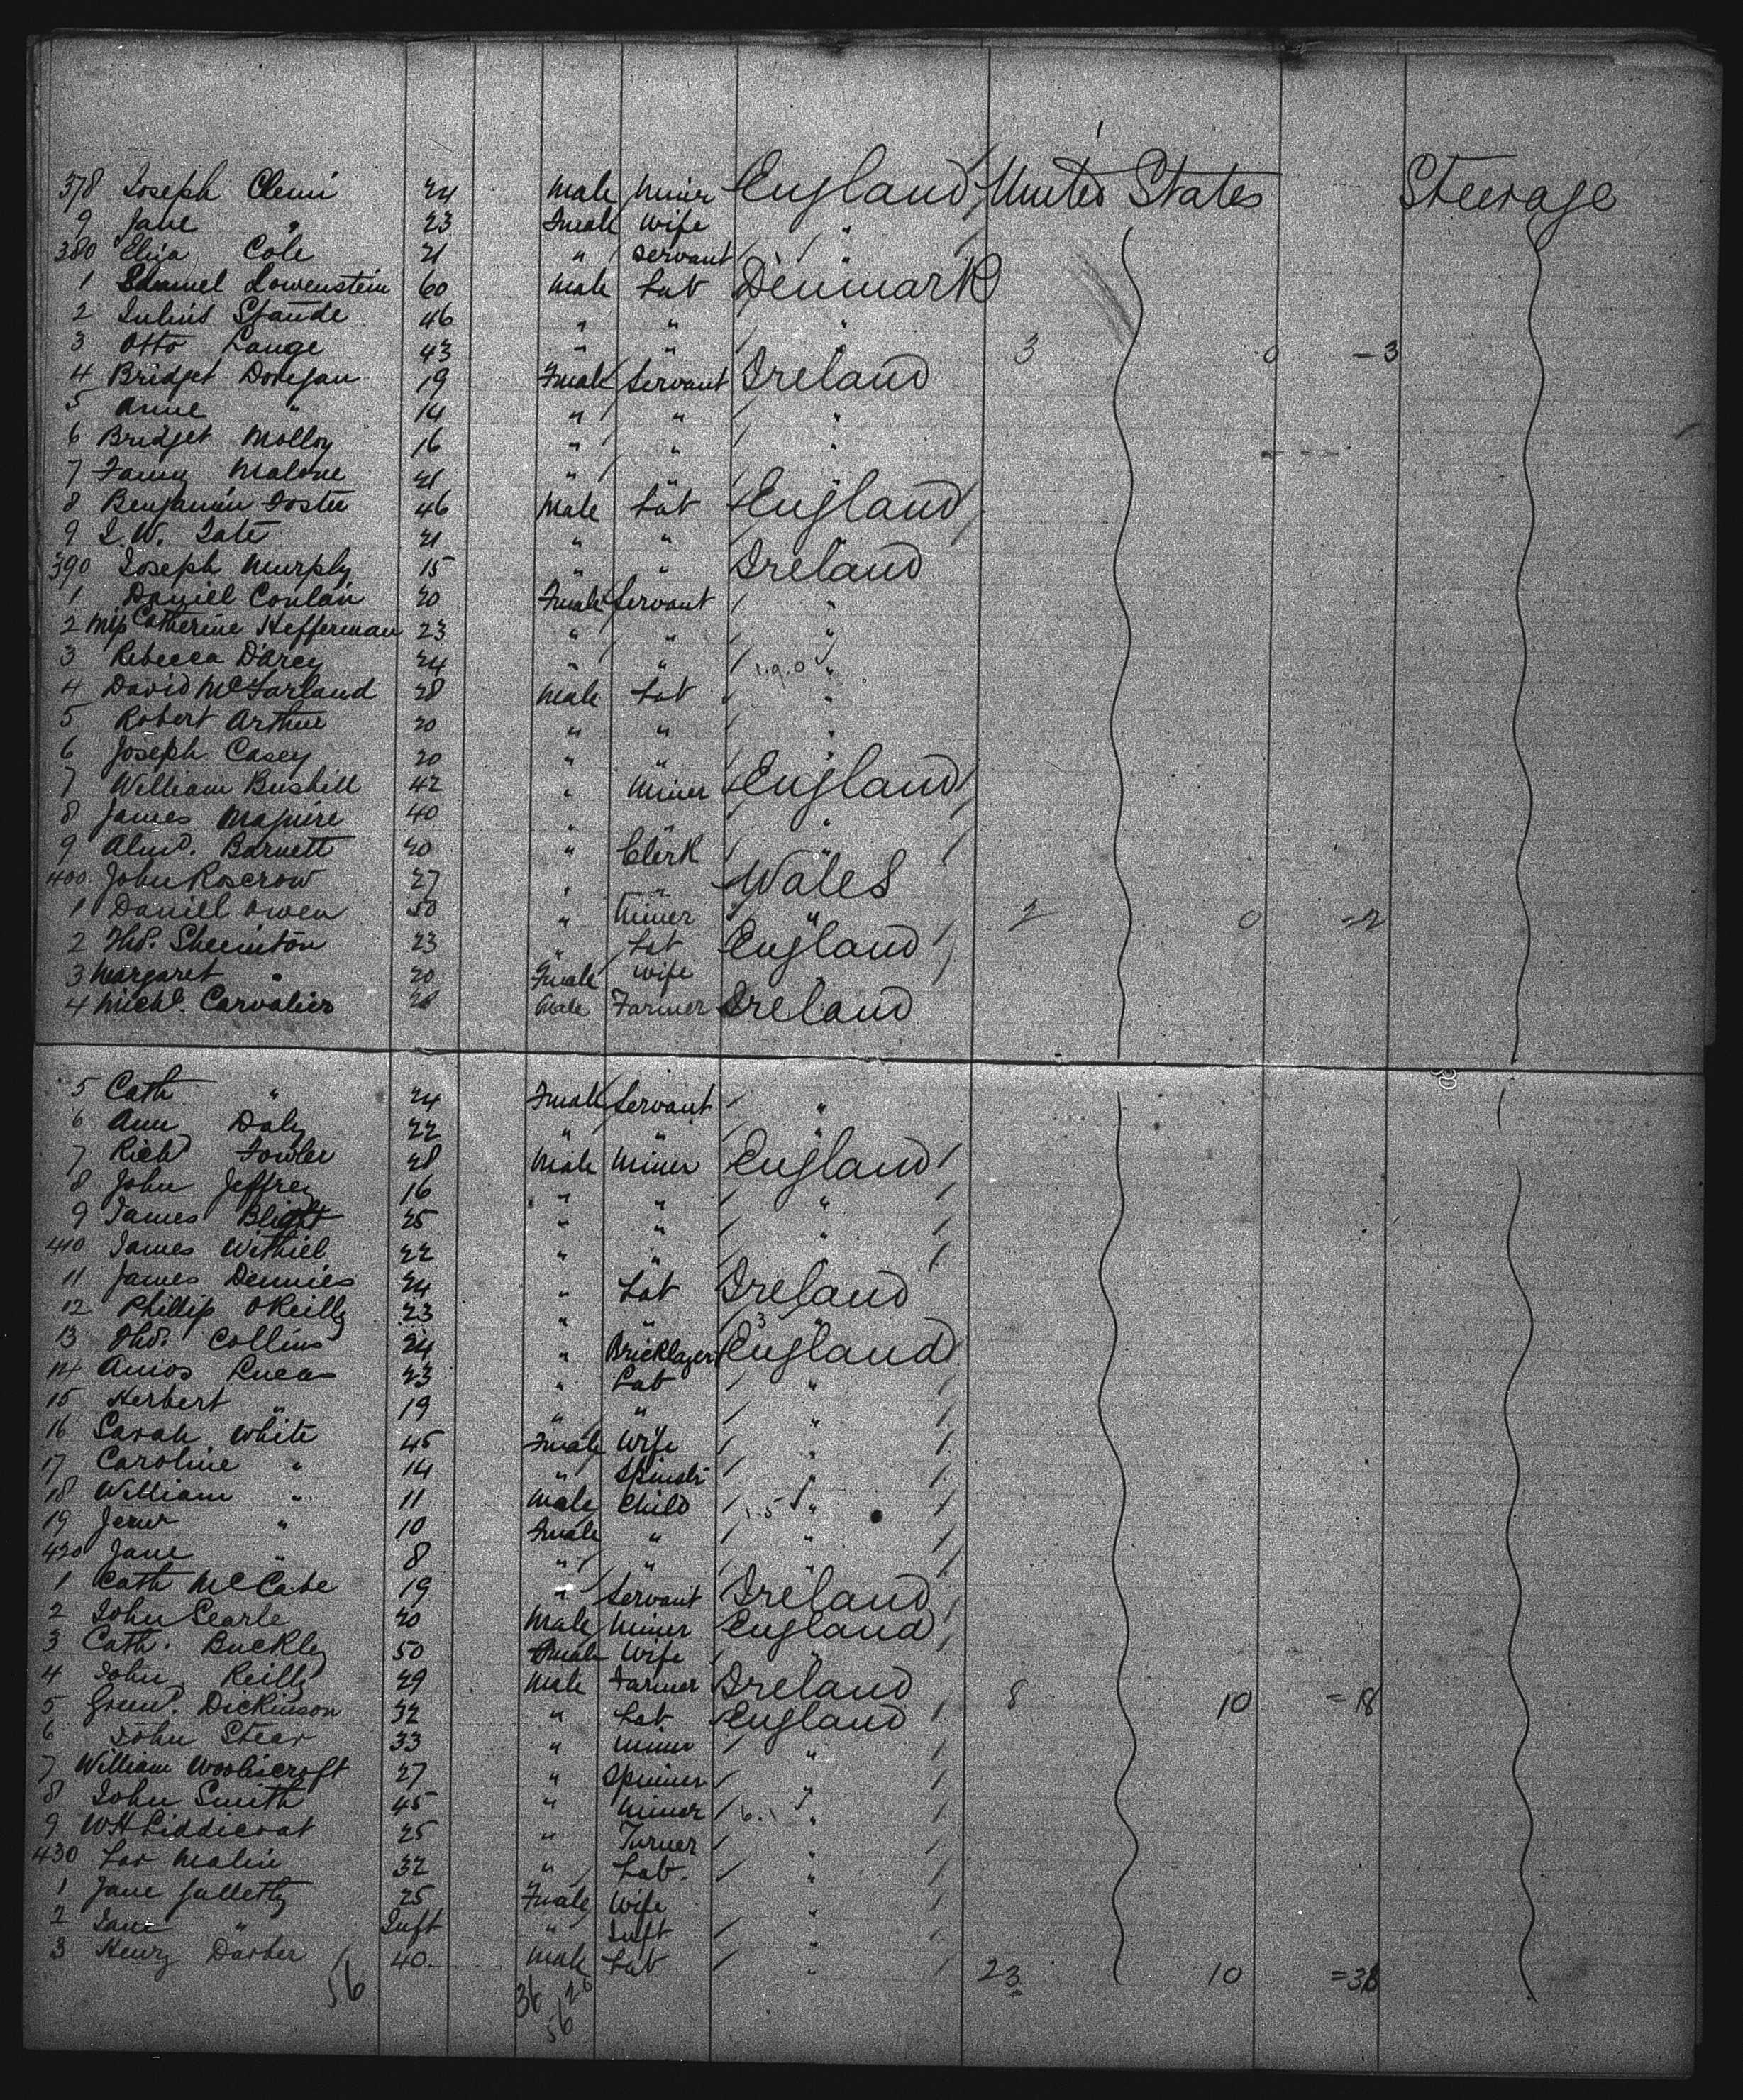 378 Joseph Clemi 24 Male Miner England United States Steerage
9 Jane " 23 Fmale Wife "
380 Eliza Cole 21 " Servant "
1 Samuel Lowenstein 60 Male Lab Denmark
2 Julius Staude 46 " " "
3 Otto Lange 43 " " " 3 0 = 3
4 Bridget Donegan 19 Fmale Servant Ireland
5 Anne " 14 " " "
6 Bridget Molloy 16 " " "
7 Fanny Malone 21 " " "
8 Benjamin Foster 46 Male Lab England
9 J.W. Tate 21 " " "
390 Joseph Murphy 15 " " Ireland
1 Daniel Conlan 20 Fmale Servant "
2 Miss Catherine Hefferman 23 " " "
3 Rebecca D'Arcy 24 " " "
4 David McFarland 28 Male Lab "
5 Robert Arthur 20 " " "
6 Joseph Casey 20 " " "
7 William Bushill 42 " Miner England
8 James Maguire 40 " "
9 Alexd. Barnett 20 " Clerk "
400 John Roscrow 27 " " Wales
1 Daniel Owen 50 " Miner " 2 0 = 2
2 Thos. 23 " Lab England
3 Margaret " 20 Fmale Wife
4 Michl. Carvalier 28 Male Farmer Ireland
5 Cath " 24 Fmale Servant "
6 Ann Daly 22 " " "
7 Richd Fowler 28 Male Miner England
8 John Jeffrey 16 " " "
9 James Blight 25 " " "
410 James Withiel 22 " "
11 James Dennies 24 " Lab Ireland
12 Phillip OReilly 23 " " "
13 Thos. Collins 24 " Bricklayer England
14 Amos Lucas 23 " Lab "
15 Herbert " 19 " " "
16 Sarah White 45 Fmale Wife "
17 Caroline " 14 " Spinstr "
18 William " 11 Male Child "
19 " 10 Fmale " "
420 Jane " 8 " " "
1 Cath McCabe 19 " Servant Ireland
2 John Searle 20 Male Miner England
3 Cath. Buckley 50 Fmale Wife "
4 John Reilly 29 Male Farmer Ireland 8 10 = 18
5 Dickinson 32 " Lab England
6 John Stear 33 " Miner "
7 William Wooliscroft 27 " Spinner "
8 John Smith 45 " Miner "
9 WH Liddicoat 25 " Turner "
430 Malin 32 " Lab. "
1 Jane Gulletly 25 Fmale Wife "
2 Jane " Inft " Inft "
3 Henry Darber 40 Male Lab " 23 10 = 38
56 36 20
56